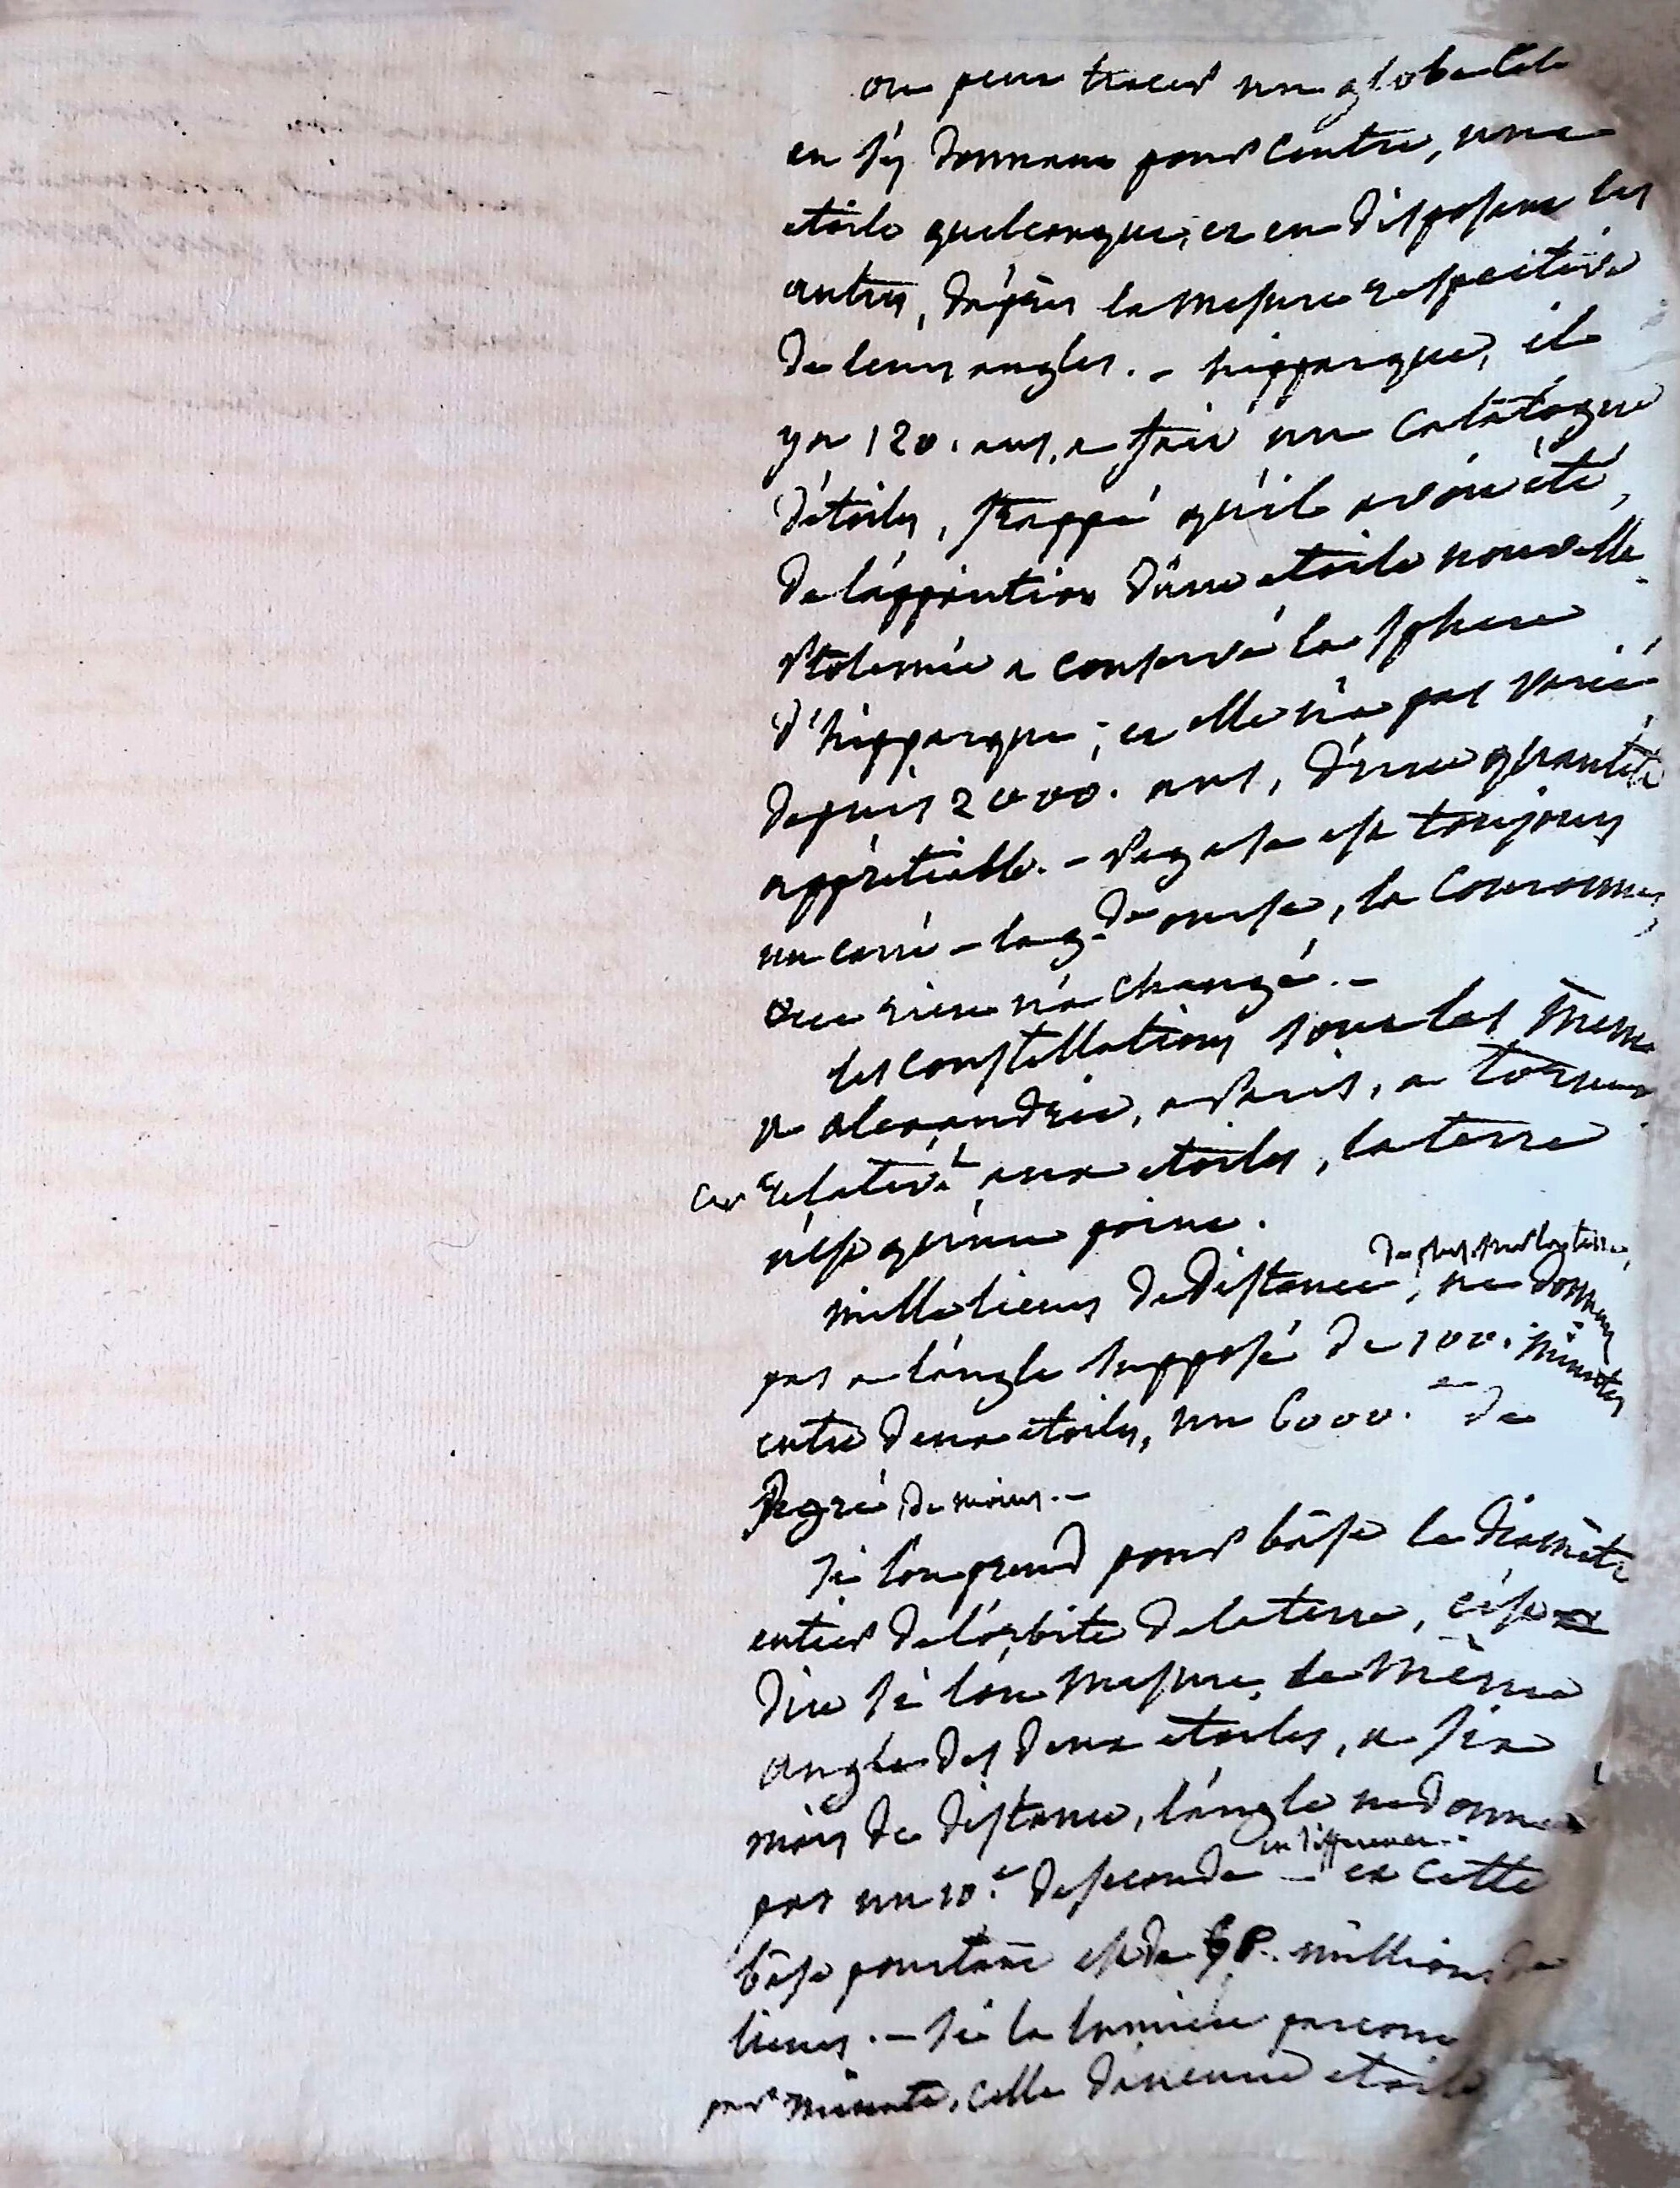 on peut tracer un globe cele
en s'y donnant pour centre, une
etoile quelconque, et en disposant les
autres, d'après la mesure respective
de leurs angles. - hipparque, il
y a 120. ans, a fait un catalogue
d'étoiles, frappé qu'il avoit été,
de l'apparition d'une etoile nouvelle.
Ptolemée a conservé la sphere
d'hipparque; et elle n'a pas varié
depuis 2000. ans, d'une quantité
appretiable. - Pegase est toujours
un carré - la g.de ourse, la couronne,
rien n'a changé. -
les constellations sont les meme
a alexandrie, a Paris, a
car relativ.t aux etoiles, la terre
n'est qu'un point.
de plus sur la terre,
mille lieues de distance, ne donnent
pas a l'angle supposé de 100. minutes
entre deux etoiles, un 6000.eme de
degré de moins. -
si l'on prend pour bâse le diamètre
entier de l'orbite de la terre, c'est a
dire si l'on mesure, le même
angle des deux etoiles, a six
mois de distance, l'angle ne donne
en difference.
pas un 10.e de seconde - et cette
bâse pourtant est de 68. millions de
lieues. - si la lumiere parcourt
par minute, celle d'aucune etoile